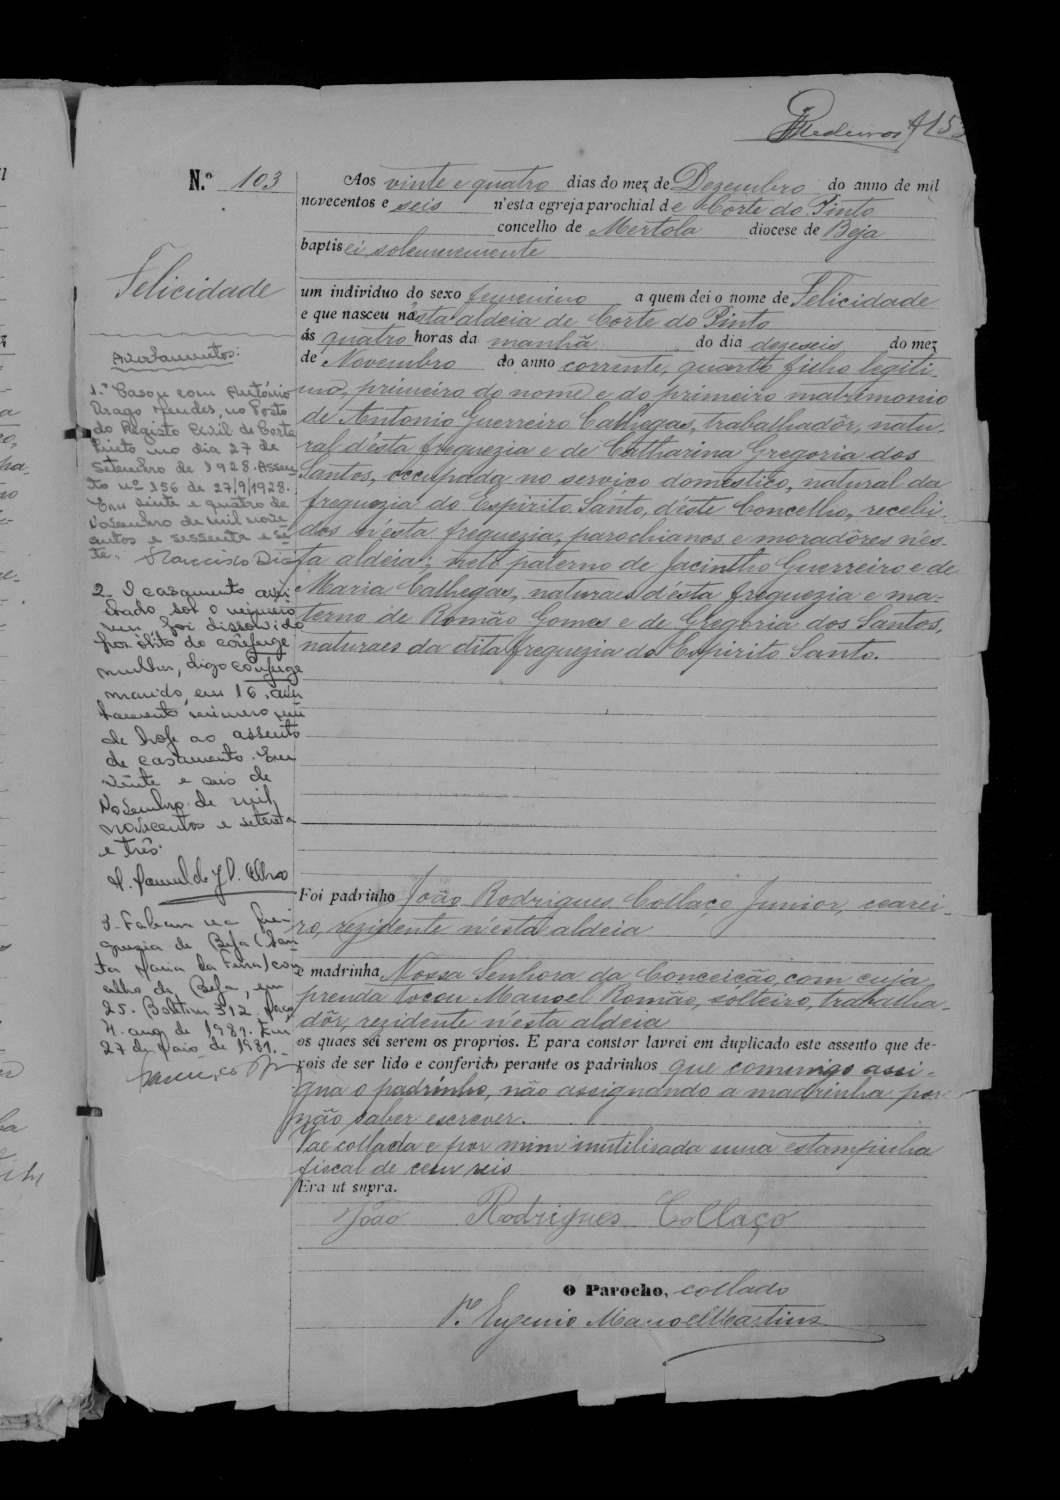 Medeiros
N.º 103
Felicidade
Aos vinte e quatro dias do mez de Dezembro do anno de mil
novecentos e seis n'esta egreja parochial de Corte do Pinto
concelho de Mertola diocese de Beja
baptisei solemnemente
um individuo do sexo femenino a quem dei o nome de Felicidade
e que nasceu nésta aldeia de Corte do Pinto
ás quatro horas da manhã do dia dezeseis do mez
de Novembro do anno corrente, quarto filho legiti-
mo, primeiro do nome e do primeiro matrimonio
de Antonio Guerreiro Calhegas, trabalhadôr, natu-
ral d'ésta freguezia e de Catharina Gregoria dos
Santos, occupada no serviço domestico, natural da
freguezia do Espirito Santo, d'éste Concelho, recebi-
dos n'ésta freguezia, parochianos e moradôres n'és-
ta aldeia; neto paterno de Jacintho Guerreiro e de
Maria Calhegas, naturaes d'ésta freguezia e ma-
terno de Romão Gomes e de Gregoria dos Santos,
naturaes da dita freguezia do Espirito Santo.
Foi padrinho João Rodrigues Collaço Junior, cearei-
ro, rezidente n'ésta aldeia
e madrinha Nossa Senhora da Conceição, com cuja
prenda tocou Manoel Romão, sólteiro, trabalha-
dôr, rezidente n'ésta aldeia
os quaes sei serem os proprios. E para constar lavrei em duplicado este assento que de-
pois de ser lido e conferido perante os padrinhos que comungo assi-
gna o padrinho, não assignando a madrinha por
não saber escrever.
Vae collada e por mim inutilisada uma estampilha
fiscal de cem reis
Era ut supra.
João Rodrigues Collaço
O Parocho, collado
P.e Eugenio Manoel Martins
Averbamentos:
1.º Casou com António
Drago Mendes, no Posto
do Registo Civil de Corte
Pinto no dia 27 de
Setembro de 1928. Assen
to nº 156 de 27/9/1928.
Em vinte e quatro de
Novembro de mil nove
centos e sessenta e se
te. Narciso Dias
2- O casamento aver
bado sob o número
um foi dissolvido
por óbito do cônjuge
mulher, digo cônjuge
marido, em 16, aver
bamento número um
de hoje ao assento
de casamento. Em
vinte e seis de
Novembro de mil
novecentos e setenta
e três.
3- Faleceu na fre
guezia de Beja (San
ta Maria da Feira) con
celho de Beja, em
25. Boletim 312
4. ano de 1981. Em
27 de Maio de 1981.